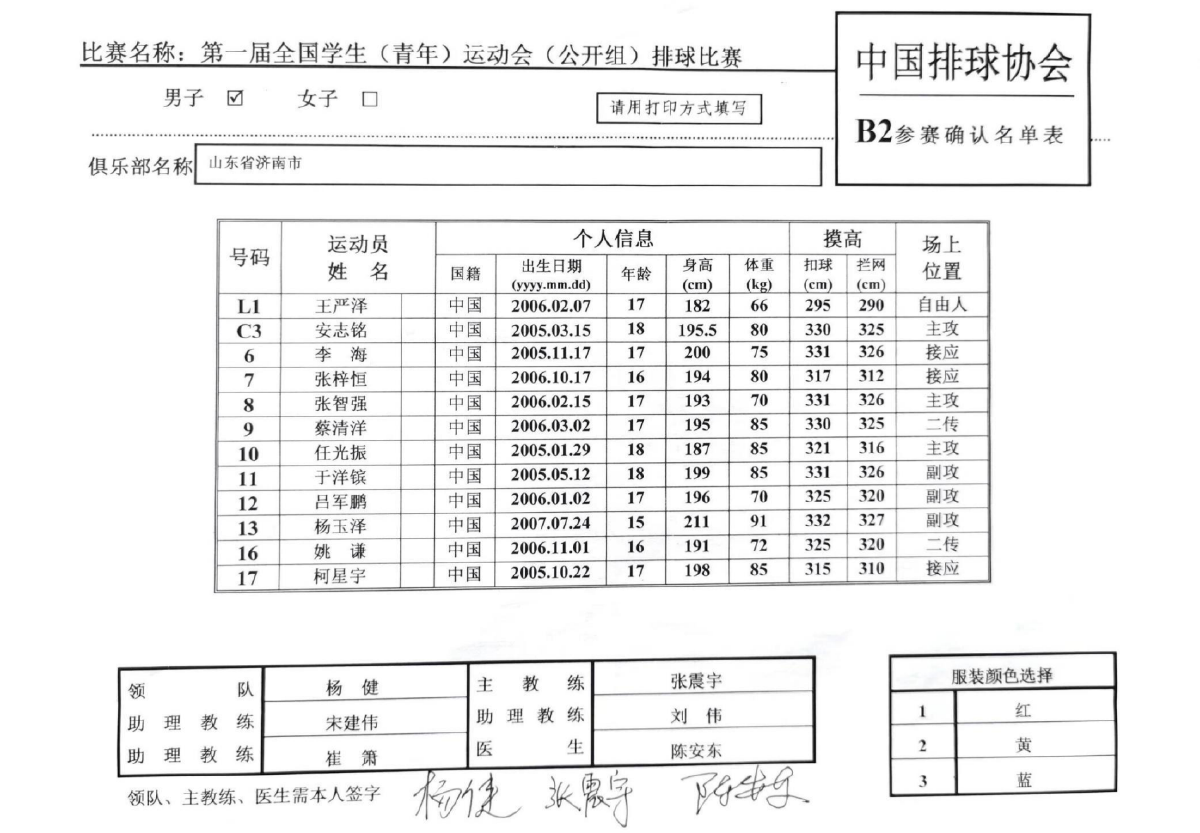 比赛名称：第一届全国学生（青年）运动会（公开组）排球比赛
男子 ☑ 女子 □
请用打印方式填写
中国排球协会
B2参赛确认名单表
俱乐部名称 山东省济南市
号码 运动员姓名 个人信息 摸高 场上位置
国籍 出生日期(yyyy.mm.dd) 年龄 身高(cm) 体重(kg) 扣球(cm) 拦网(cm)
L1 王严泽 中国 2006.02.07 17 182 66 295 290 自由人
C3 安志铭 中国 2005.03.15 18 195.5 80 330 325 主攻
6 李 海 中国 2005.11.17 17 200 75 331 326 接应
7 张梓恒 中国 2006.10.17 16 194 80 317 312 接应
8 张智强 中国 2006.02.15 17 193 70 331 326 主攻
9 蔡清洋 中国 2006.03.02 17 195 85 330 325 二传
10 任光振 中国 2005.01.29 18 187 85 321 316 主攻
11 于洋镔 中国 2005.05.12 18 199 85 331 326 副攻
12 吕军鹏 中国 2006.01.02 17 196 70 325 320 副攻
13 杨玉泽 中国 2007.07.24 15 211 91 332 327 副攻
16 姚 谦 中国 2006.11.01 16 191 72 325 320 二传
17 柯星宇 中国 2005.10.22 17 198 85 315 310 接应
领 队 杨 健 主 教 练 张震宇
助 理 教 练 宋建伟 助 理 教 练 刘 伟
助 理 教 练 崔 箫 医 生 陈安东
服装颜色选择
1 红
2 黄
3 蓝
领队、主教练、医生需本人签字 杨健 张震宇 陈安东